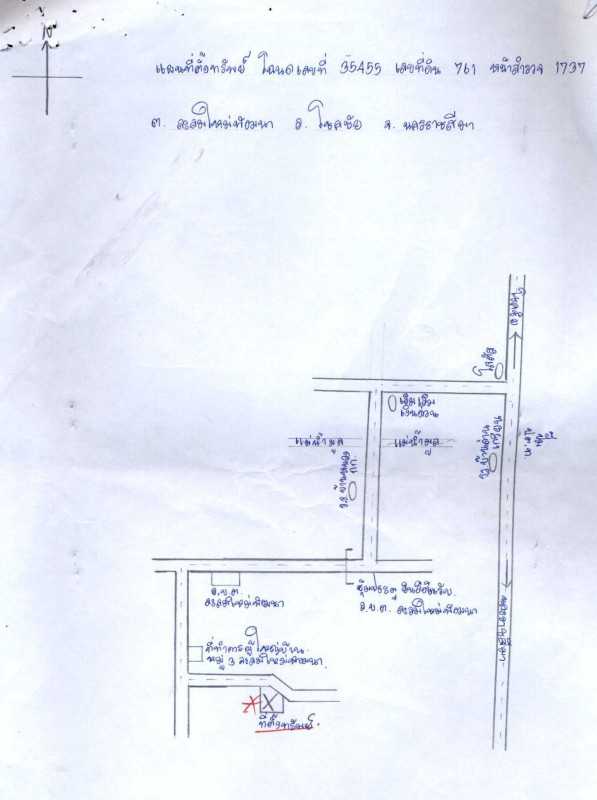 น
แผนที่ตั้งทรัพย์ โฉนดเลขที่ 35455 เลขที่ดิน 761 หน้าสำรวจ 1737
ต. ละลมใหม่พัฒนา อ. โชคชัย จ. นครราชสีมา
โชคชัย
โลตัส
เงินด่วน
แม่น้ำมูล
แม่น้ำมูล
ปั๊ม ป.ต.ท
รร.บ้านหนอง
อ.บ.ต.
ละลมใหม่พัฒนา
ซุ้มประตู ยินดีต้อนรับ
อ.บ.ต. ละลมใหม่พัฒนา
นครราชสีมา
ที่ทำการผู้ใหญ่บ้าน
หมู่ 3 ละลมใหม่พัฒนา
ที่ตั้งทรัพย์.